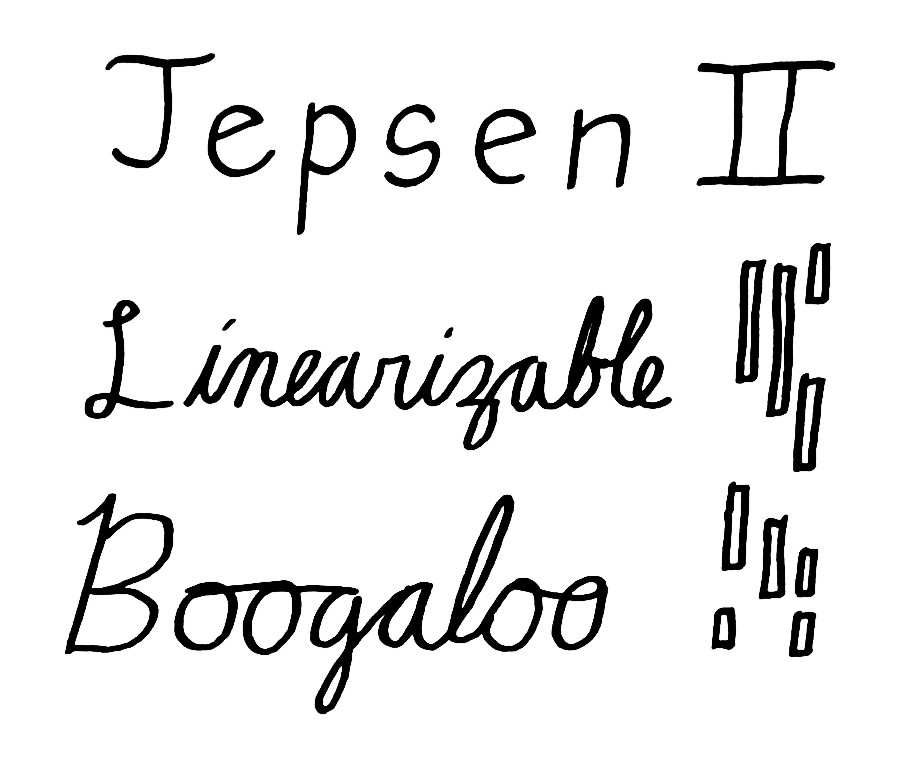 Jepsen II
Linearizable
Boogaloo